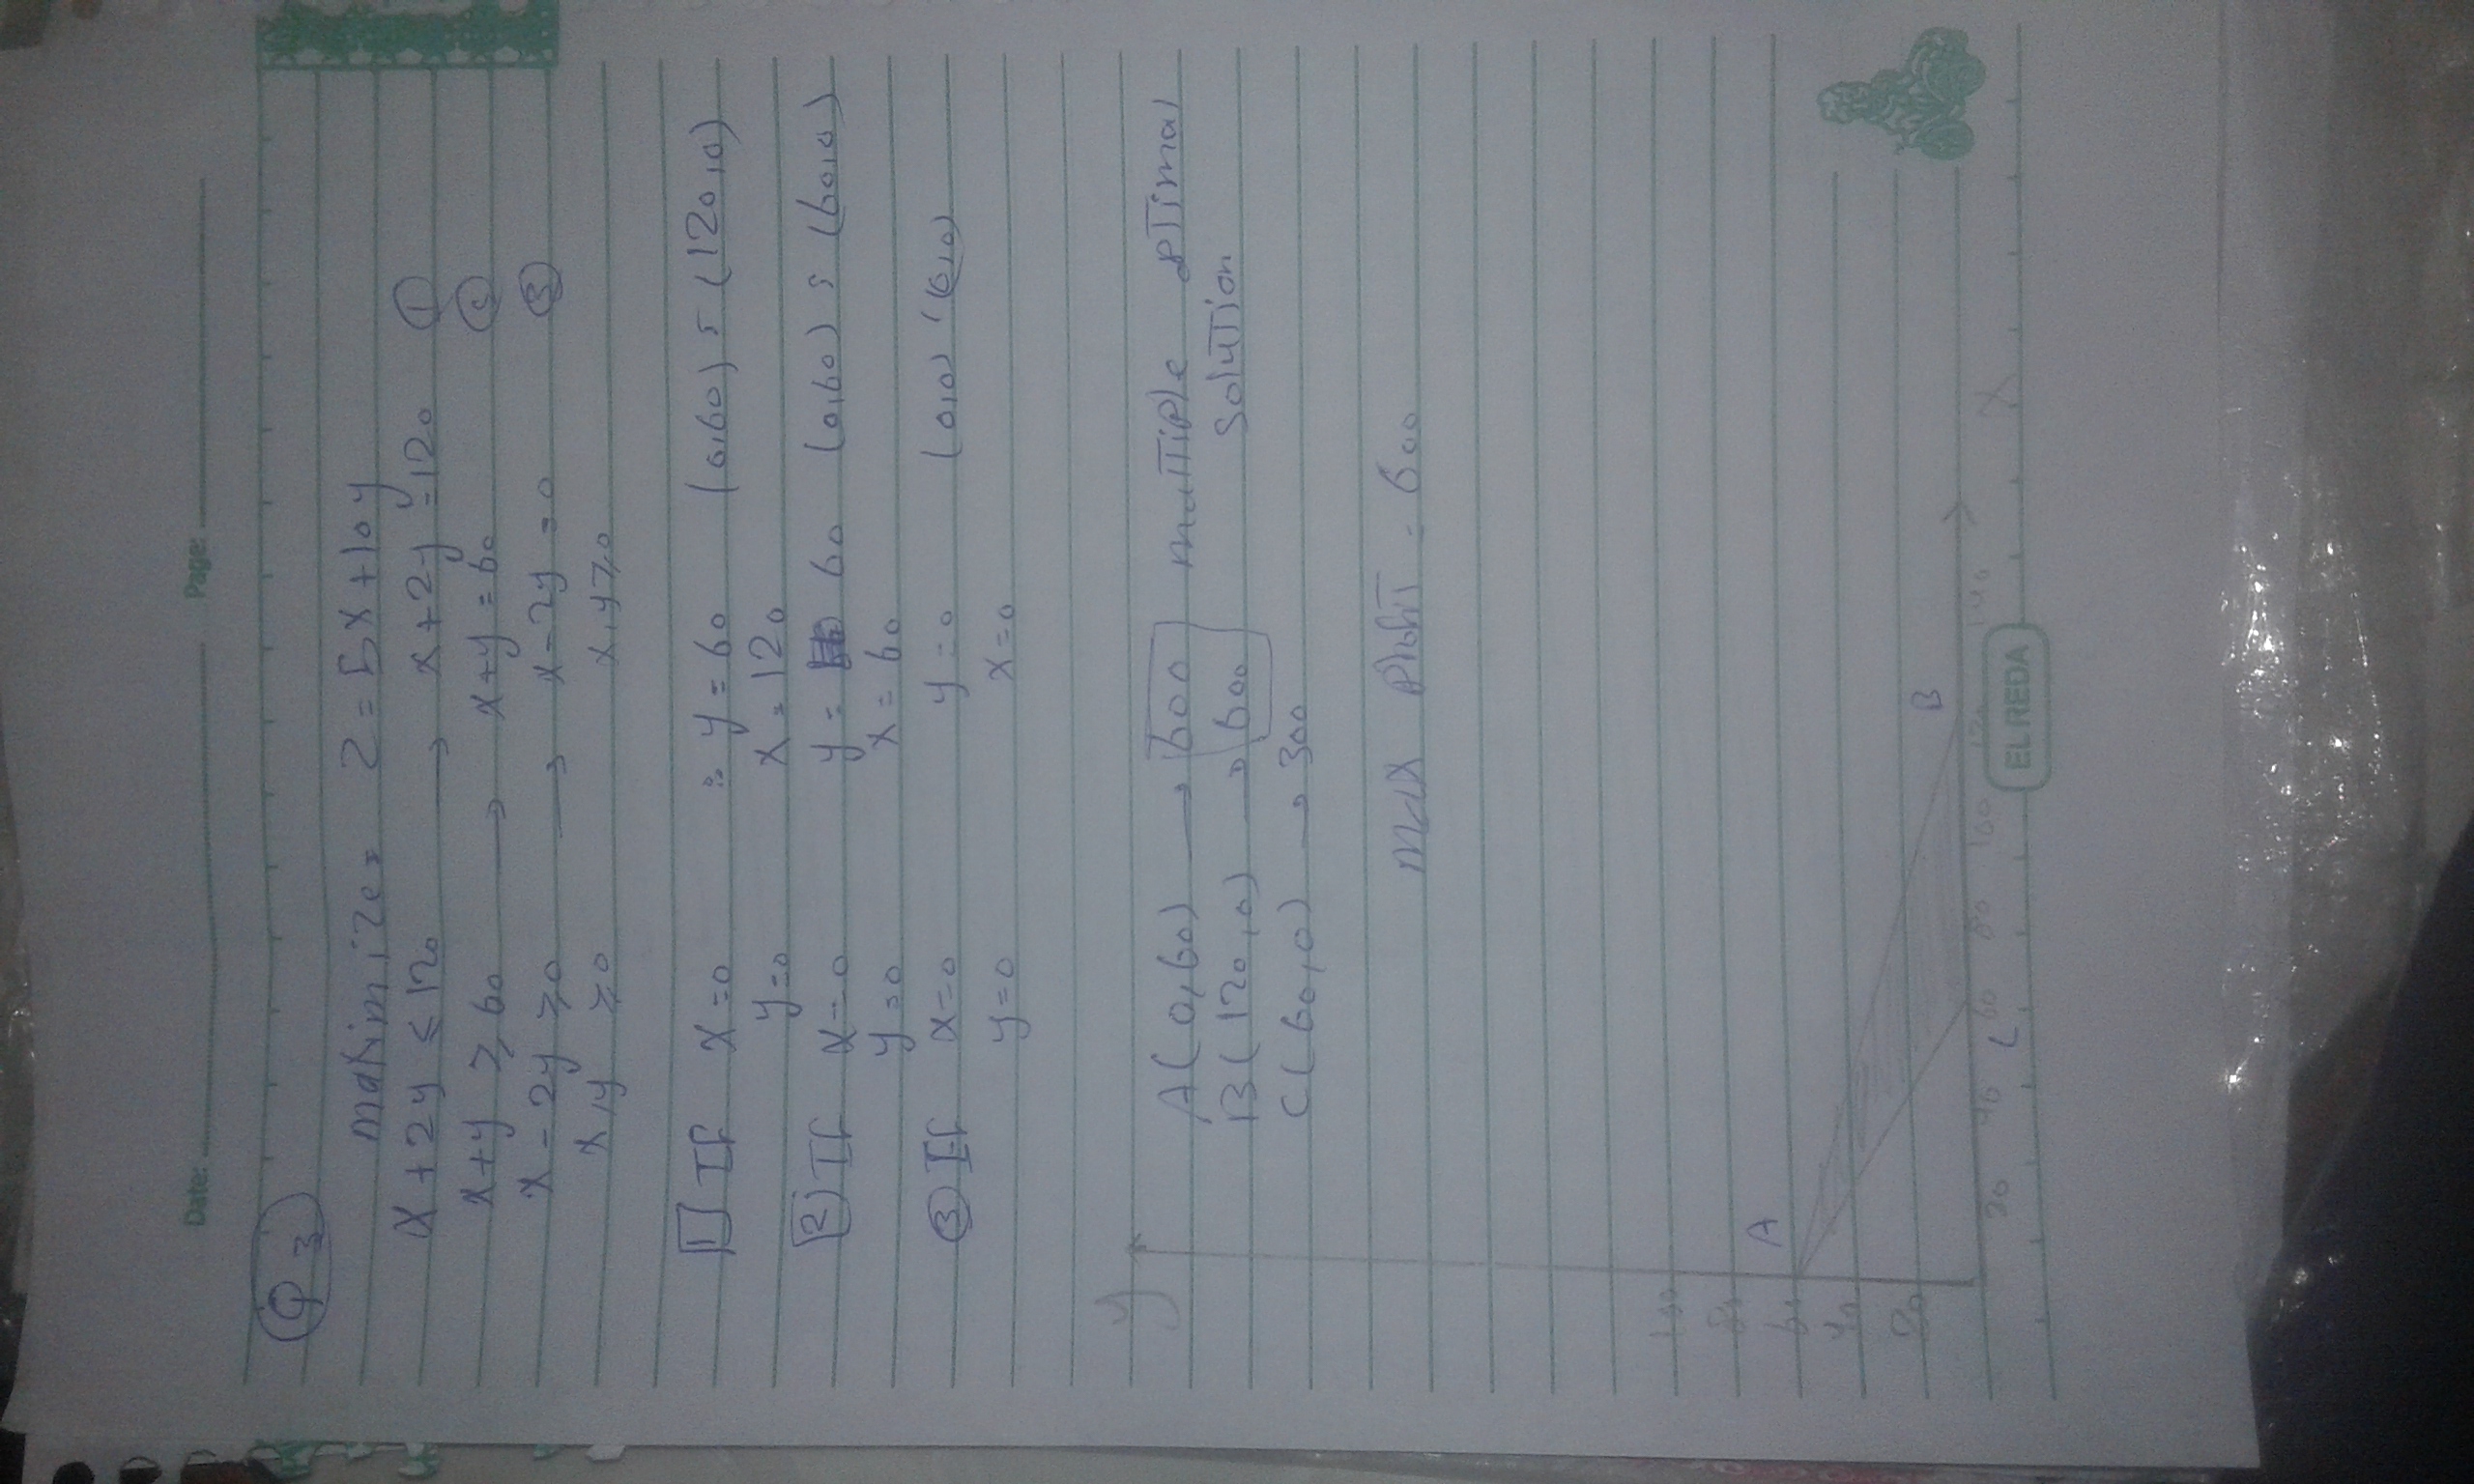 Date: Page:
Q 3
maximize = Z = 5x + 10y
x + 2y ≤ 120 → x + 2y = 120 ①
x + y ≥ 60 → x + y = 60 ②
x - 2y ≥ 0 → x - 2y = 0 ③
x, y ≥ 0 x, y ≥ 0
1 If x = 0 ∴ y = 60 (0,60) , (120,0)
y = 0 x = 120
2 If x = 0 y = 60 (0,60) , (60,0)
y = 0 x = 60
③ If x = 0 y = 0 (0,0) , (0,0)
y = 0 x = 0
y
A(0,60) → 600 multiple optimal
B(120,0) → 600 solution
C(60,0) → 300
max Profit = 600
100
80
A
60
40
20
B
20 40 60 80 100 120 140
C
x
EL REDA